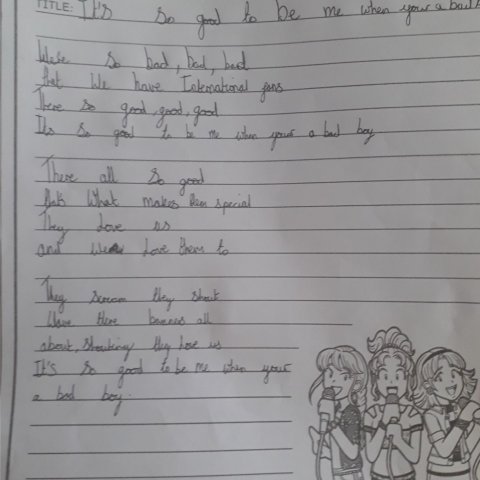 TITLE: It's so good to be me when your a bad
We're so bad, bad, bad
that We have International fans
There so good, good, good
Its so good to be me when your a bad boy
There all so good
thats What makes them special
They Love us
and We Love them to
They scream they shout
Wave there banners all
about, shouting they love us
It's so good to be me when your
a bad boy.